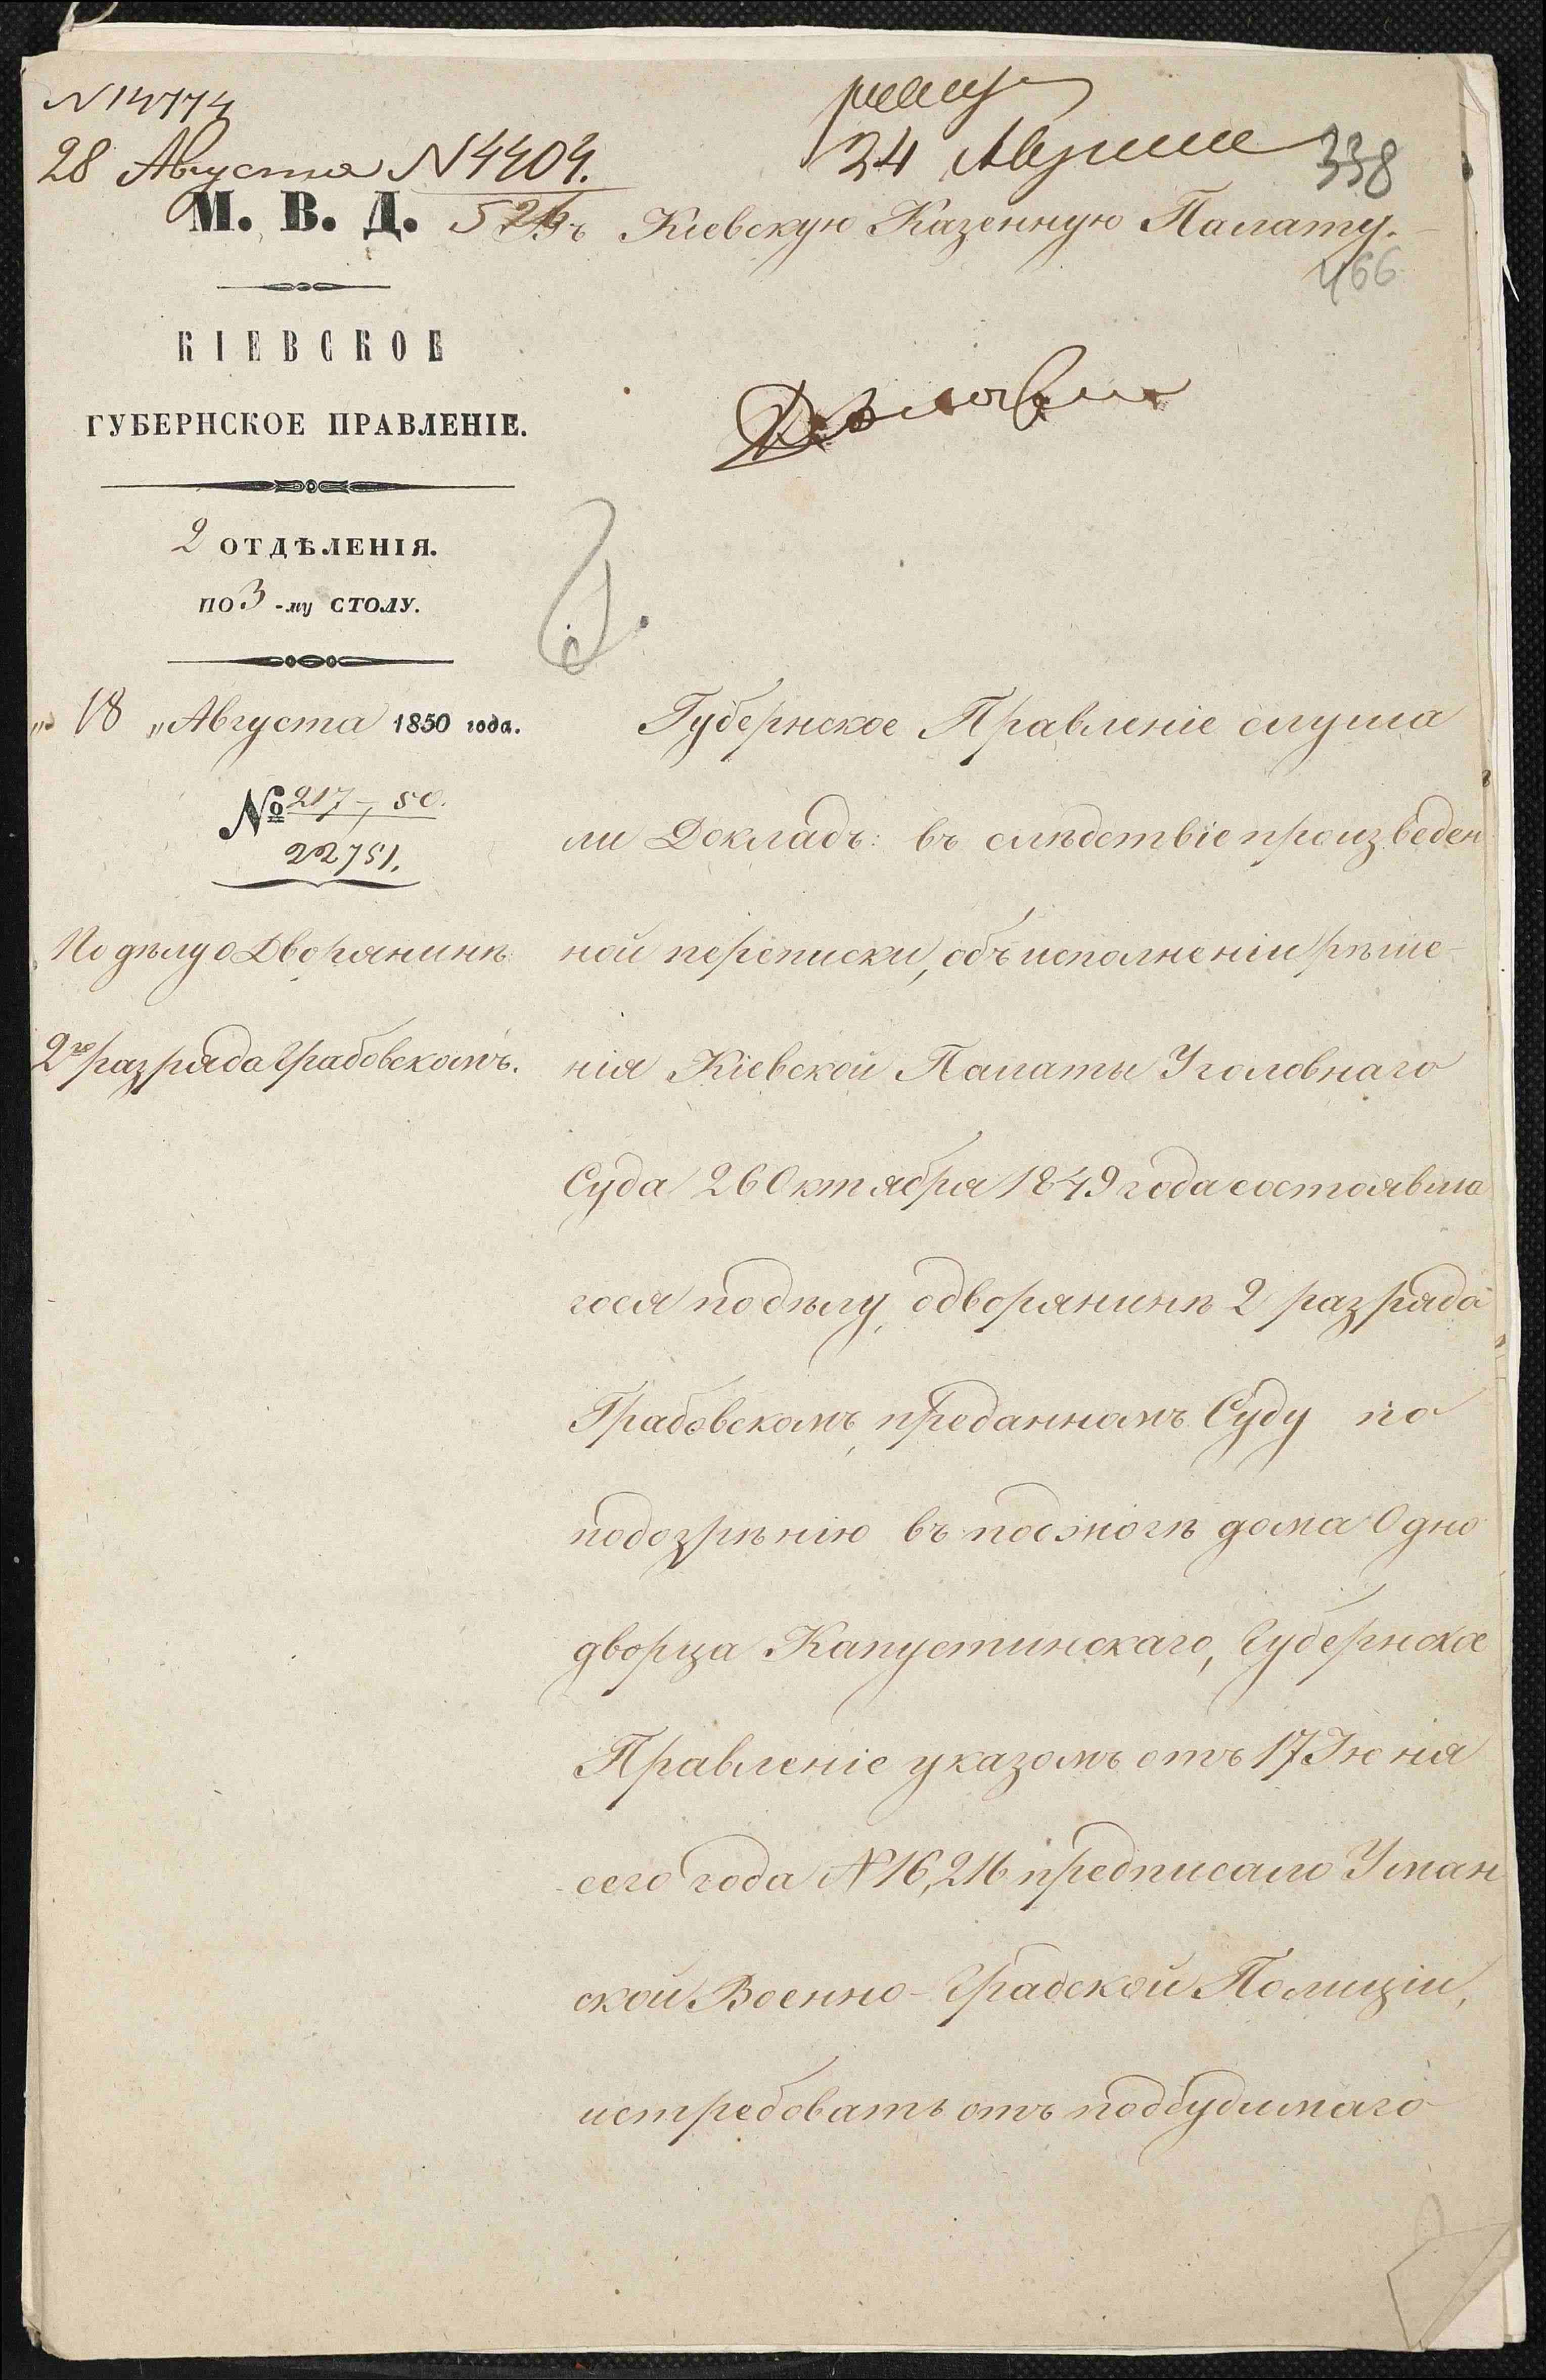 N 14774
28 Августа N 4404.
526
24 Августа
338
М. В. Д.
Въ Кіевскую Казенную Палату.
466
КІЕВСКОЕ
ГУБЕРНСКОЕ ПРАВЛЕНІЕ.
2 ОТДѢЛЕНІЯ.
ПО 3-му СТОЛУ.
„ 18 „ Августа 1850 года.
№ 217, 50.
22751.
По дѣлу о Дворянинѣ
2го разряда Грабовскомъ.
Губернское Правленіе слуша
ли Докладъ: въ слѣдствіе произведен
ной переписки, объ исполненіи рѣше-
нія Кіевской Палаты Уголовнаго
Суда 26 Октября 1849 года состоявша
гося по дѣлу, о дворянинѣ 2 разряда
Грабовскомъ, преданномъ Суду по
подозрѣнію въ поджогѣ дома Одно
дворца Капустинскаго, Губернское
Правленіе указомъ отъ 17 Іюнія
сего года N 16,216 предписало Уман
ской Военно-Градской Полиціи,
истребовать отъ подсудимаго